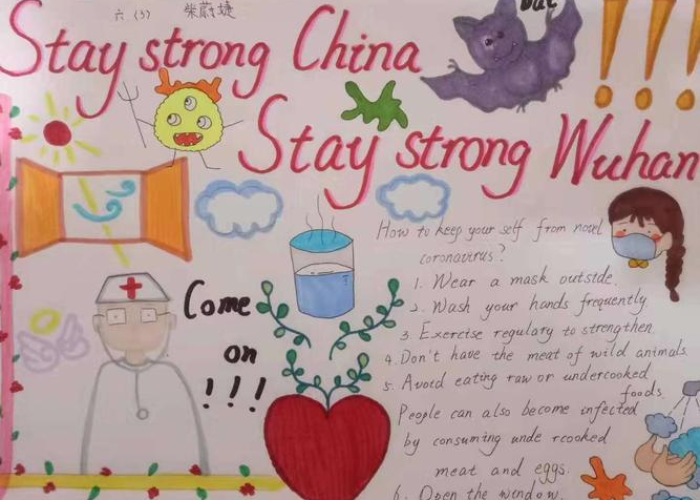 六 (3)
bat
Stay strong China
!!!
Stay strong Wuhan
How to keep your self from novel
coronavirus?
1. Wear a mask outside.
2. Wash your hands frequently
3. Exercise regulary to strengthen
4. Don't have the meat of wild animals.
5. Avoid eating raw or undercooked
foods.
People can also become infected
by consuming unde rcooked
meat and eggs.
6. Open the window.
Come
on
!!!